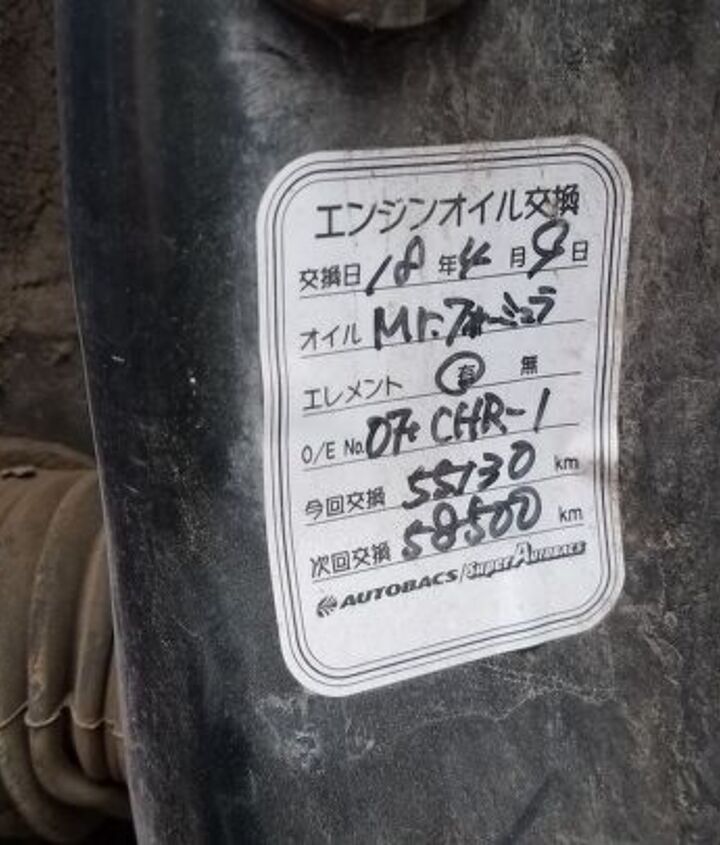 エンジンオイル交換
交換日 18年4月9日
オイル Mr.フォーミュラ
エレメント 有 無
O/E No. CHR-1
今回交換 55130 km
次回交換 58500 km
AUTOBACS/Super AUTOBACS